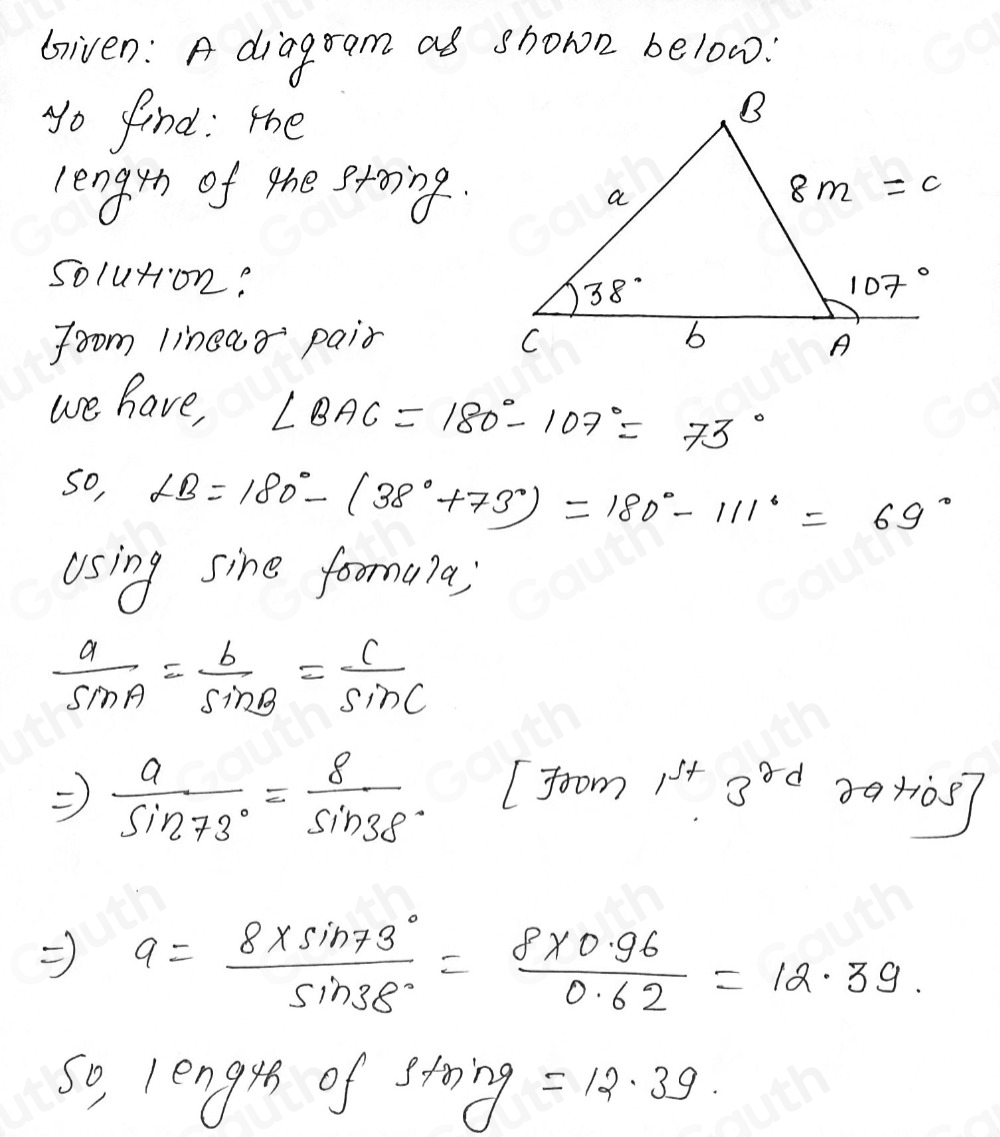 Given: A diagram as shown below:
To find: The
length of the string.
B
a
8m = c
38°
107°
C
b
A
Solution:
From linear pair
we have, ∠BAC = 180° - 107° = 73°
So, ∠B = 180° - (38° + 73°) = 180° - 111° = 69°
Using sine formula;
a/sinA = b/sinB = c/sinC
⇒ a/sin73° = 8/sin38° [From 1st 3rd ratios]
⇒ a = 8×sin73°/sin38° = 8×0.96/0.62 = 12.39.
So, length of string = 12.39.
Gauth